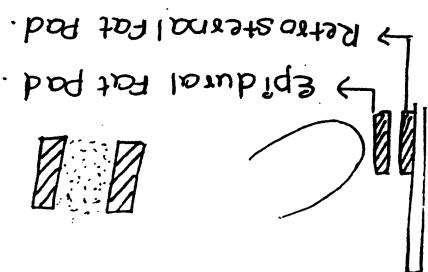 → Epidural Fat Pad.
→ Retrosternal Fat Pad.